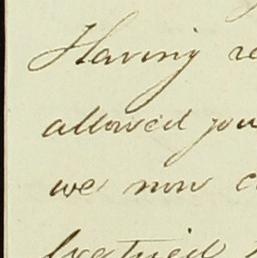 Having re
allowed you
we now c